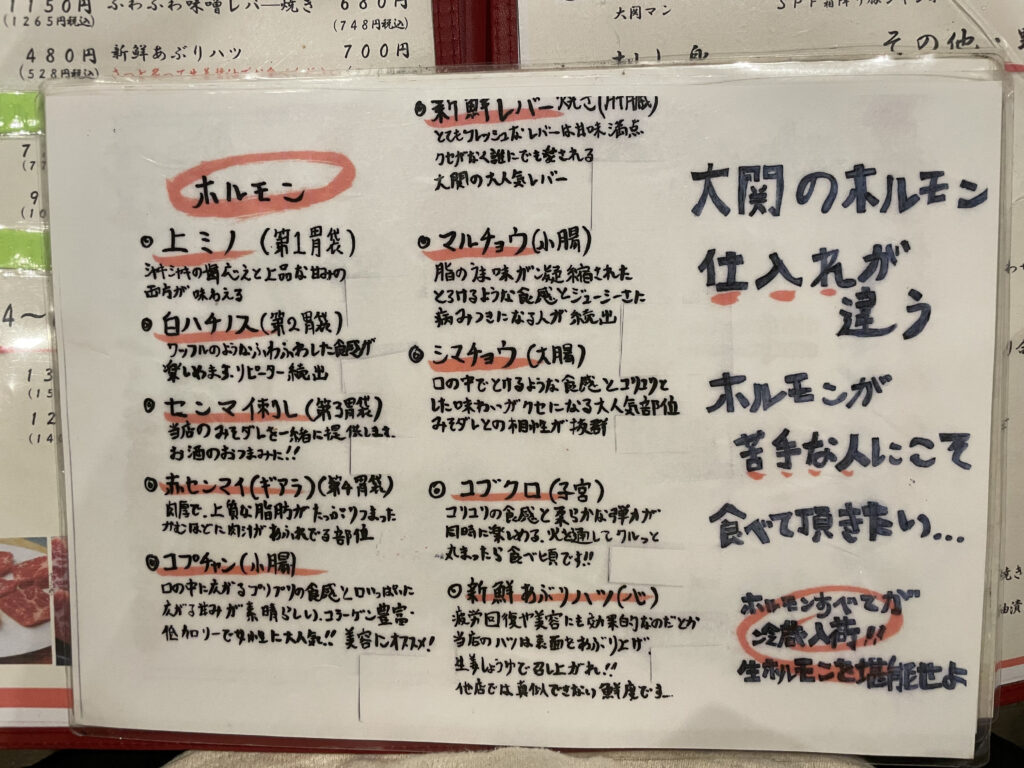 1150円 ふわふわ味噌レバー焼き 680円
(1265円税込) (748円税込)
480円 新鮮あぶりハツ 700円
(528円税込)
大関マン
その他
ホルモン
◎上ミノ(第1胃袋)
シャキシャキの歯ごたえと上品な甘みの
両方が味わえる
◎白ハチノス(第2胃袋)
ワッフルのようなふわふわした食感が
楽しめます。リピーター続出
◎センマイ刺し(第3胃袋)
当店のみそダレを一緒に提供します。
お酒のおつまみに!!
◎赤センマイ(ギアラ)(第4胃袋)
肉厚で、上質な脂肪がたっぷりつまった
かむほどに肉汁があふれでる部位
◎コプチャン(小腸)
口の中に広がるプリプリの食感と口いっぱいに
広がる甘みが素晴らしい、コラーゲン豊富・
低カロリーで女性に大人気!! 美容にオススメ!
◎新鮮レバー焼き(肝臓)
とてもフレッシュなレバーは甘味満点
クセがなく誰にでも愛される
大関の大人気レバー
◎マルチョウ(小腸)
脂のうま味が凝縮された
とろけるような食感とジューシーさに
病みつきになる人が続出
◎シマチョウ(大腸)
口の中でとけるような食感とコリコリと
した味わいがクセになる大人気部位
みそダレとの相性が抜群
◎コブクロ(子宮)
コリコリの食感と柔らかな弾力が
同時に楽しめる、火を通してクルっと
丸まったら食べ頃です!!
◎新鮮あぶりハツ(心)
疲労回復や美容にも効果的なのだとか
当店のハツは表面をあぶり上げ、
生姜しょうゆで召し上がれ!!
他店では真似できない鮮度です…
大関のホルモン
仕入れが
違う
ホルモンが
苦手な人にこそ
食べて頂きたい…
ホルモンすべてが
冷蔵入荷!!
生ホルモンを堪能せよ